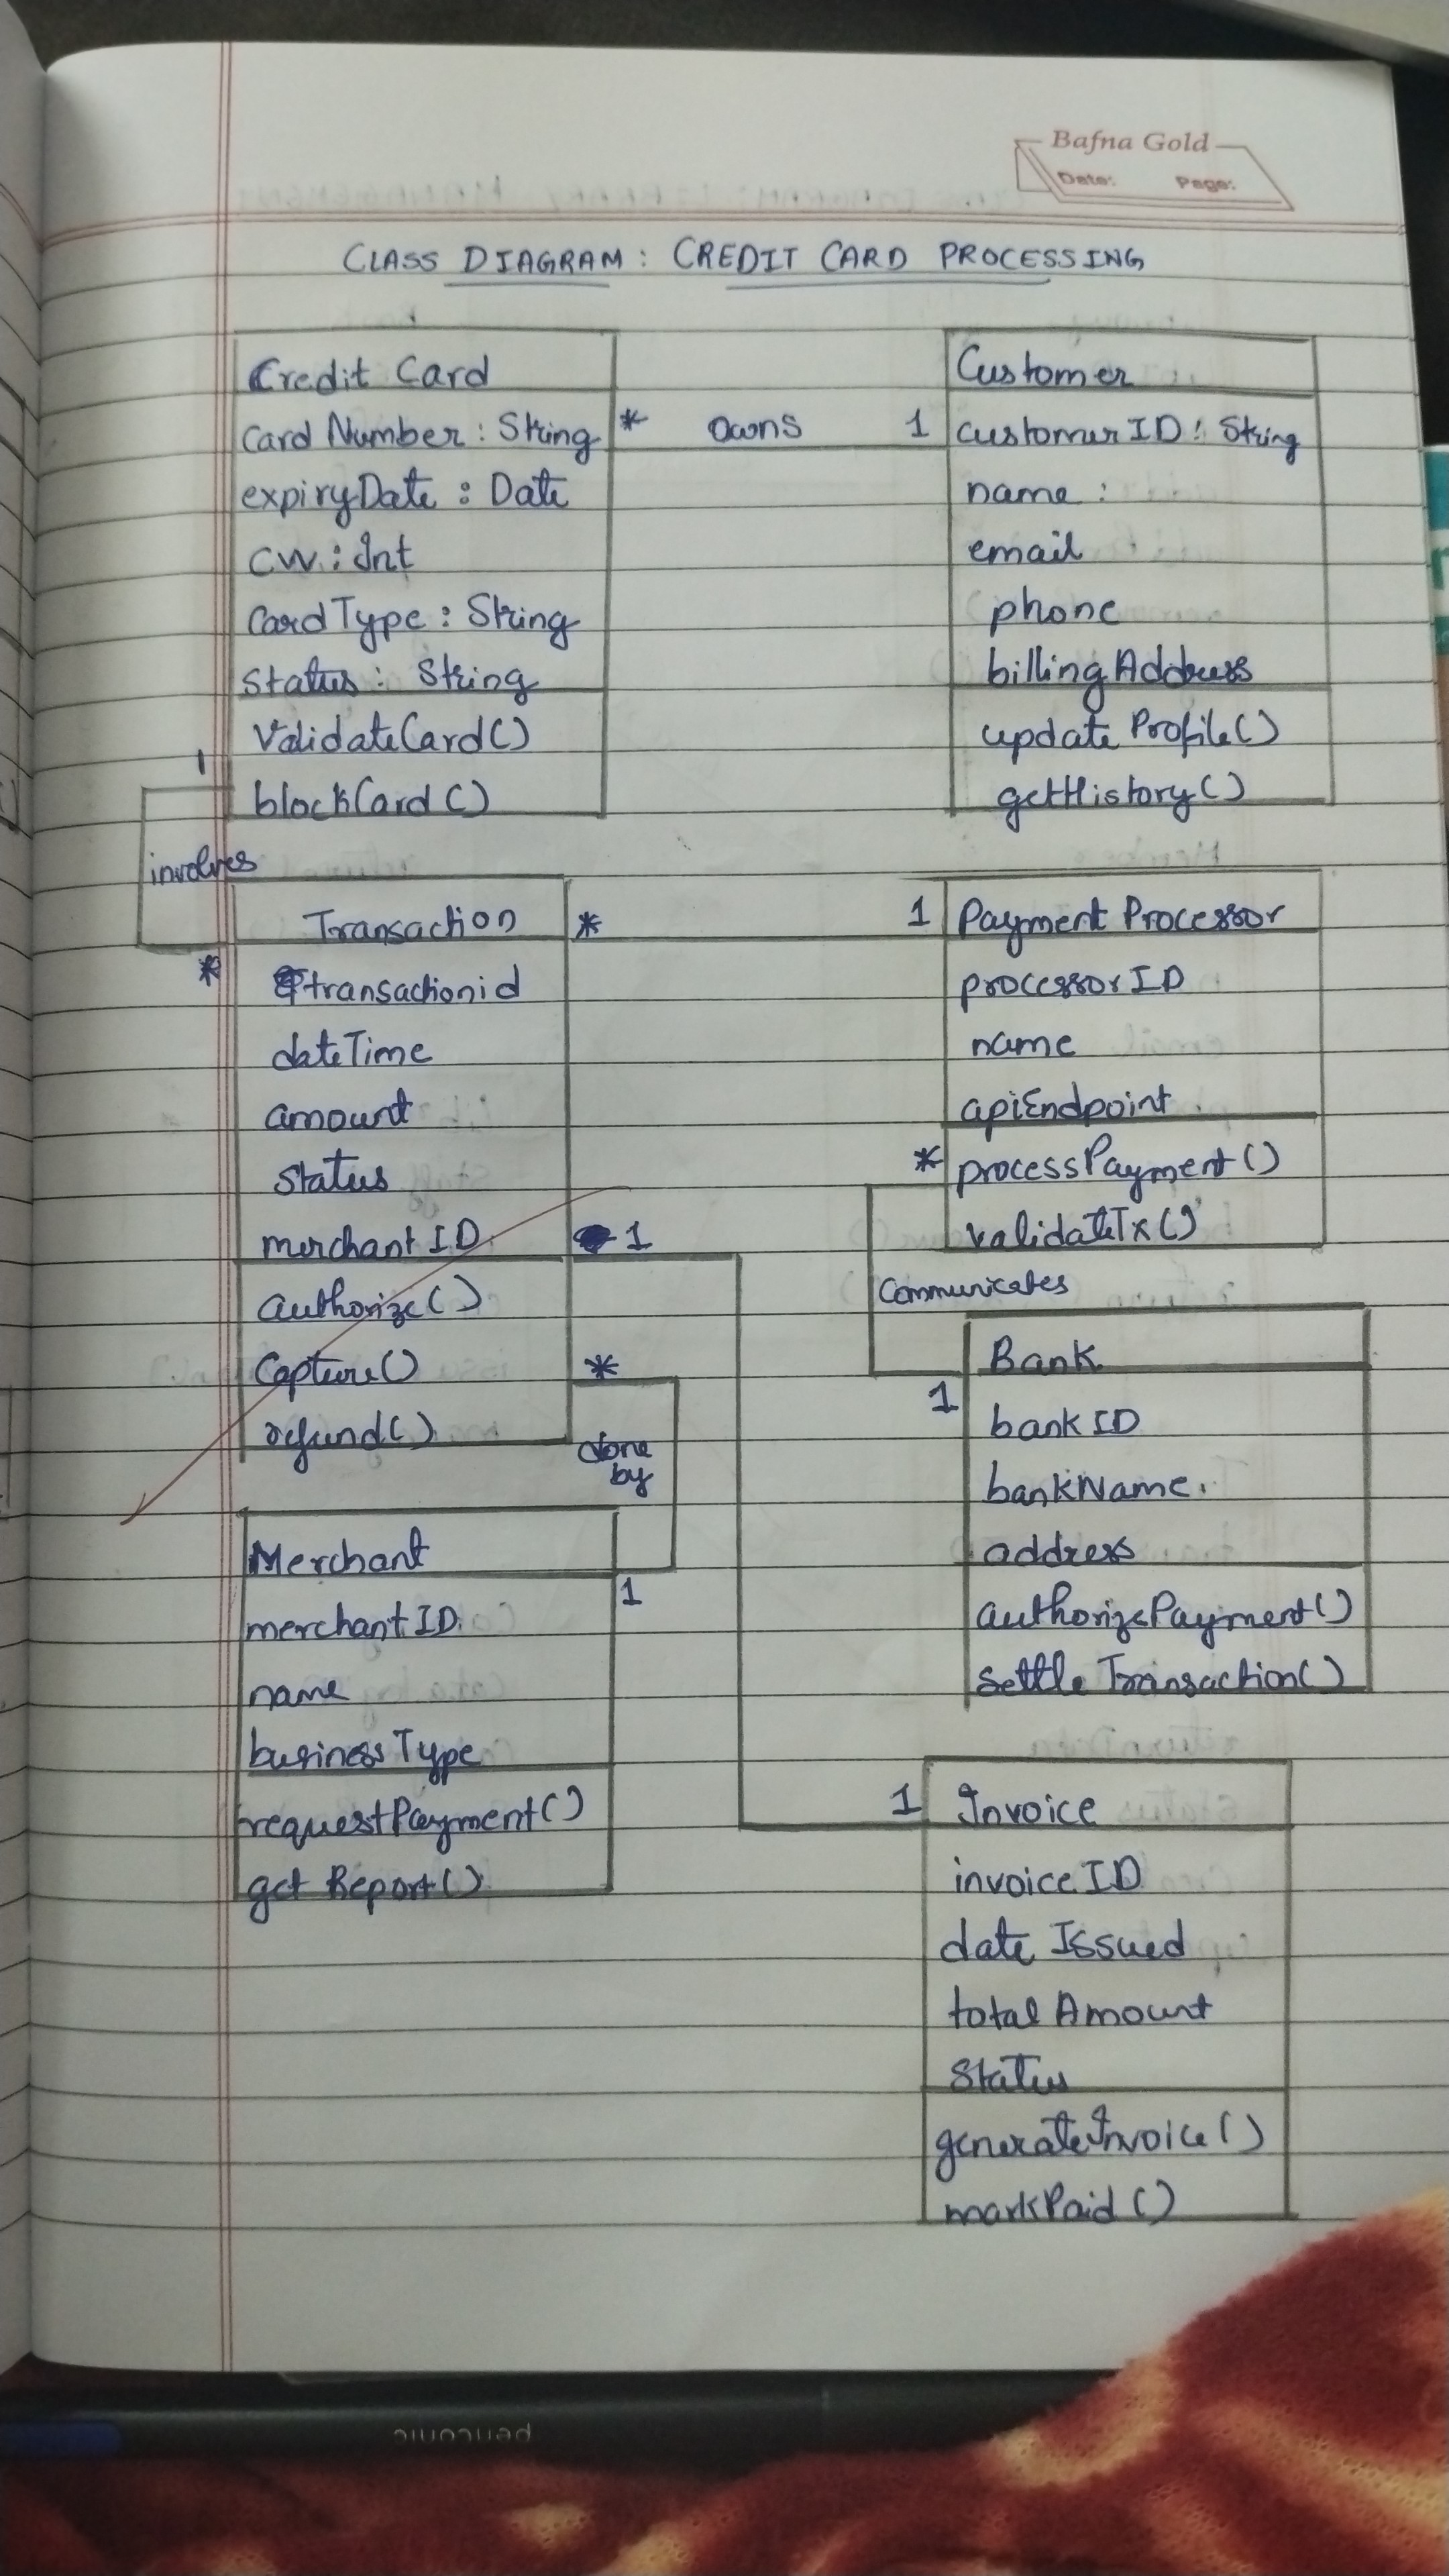 Bafna Gold
Date: Page:
CLASS DIAGRAM: CREDIT CARD PROCESSING
Credit Card
Card Number: String
expiryDate: Date
CVV: Int
CardType: String
Status: String
ValidateCard()
blockCard()
* owns 1
Customer
customerID: String
name:
email
phone
billingAddress
updateProfile()
getHistory()
1
involves
*
Transaction
transactionid
dateTime
amount
Status
merchant ID
authorize()
Capture()
refund()
* 1
Payment Processor
processorID
name
apiEndpoint
processPayment()
validateTx()
*
Communicates
1
Bank
bank ID
bankName.
address
authorizePayment()
settle Transaction()
1
*
done
by
1
Merchant
merchantID
name
business Type
requestPayment()
get Report()
1
Invoice
invoice ID
date Issued
total Amount
Status
generateInvoice()
markPaid()